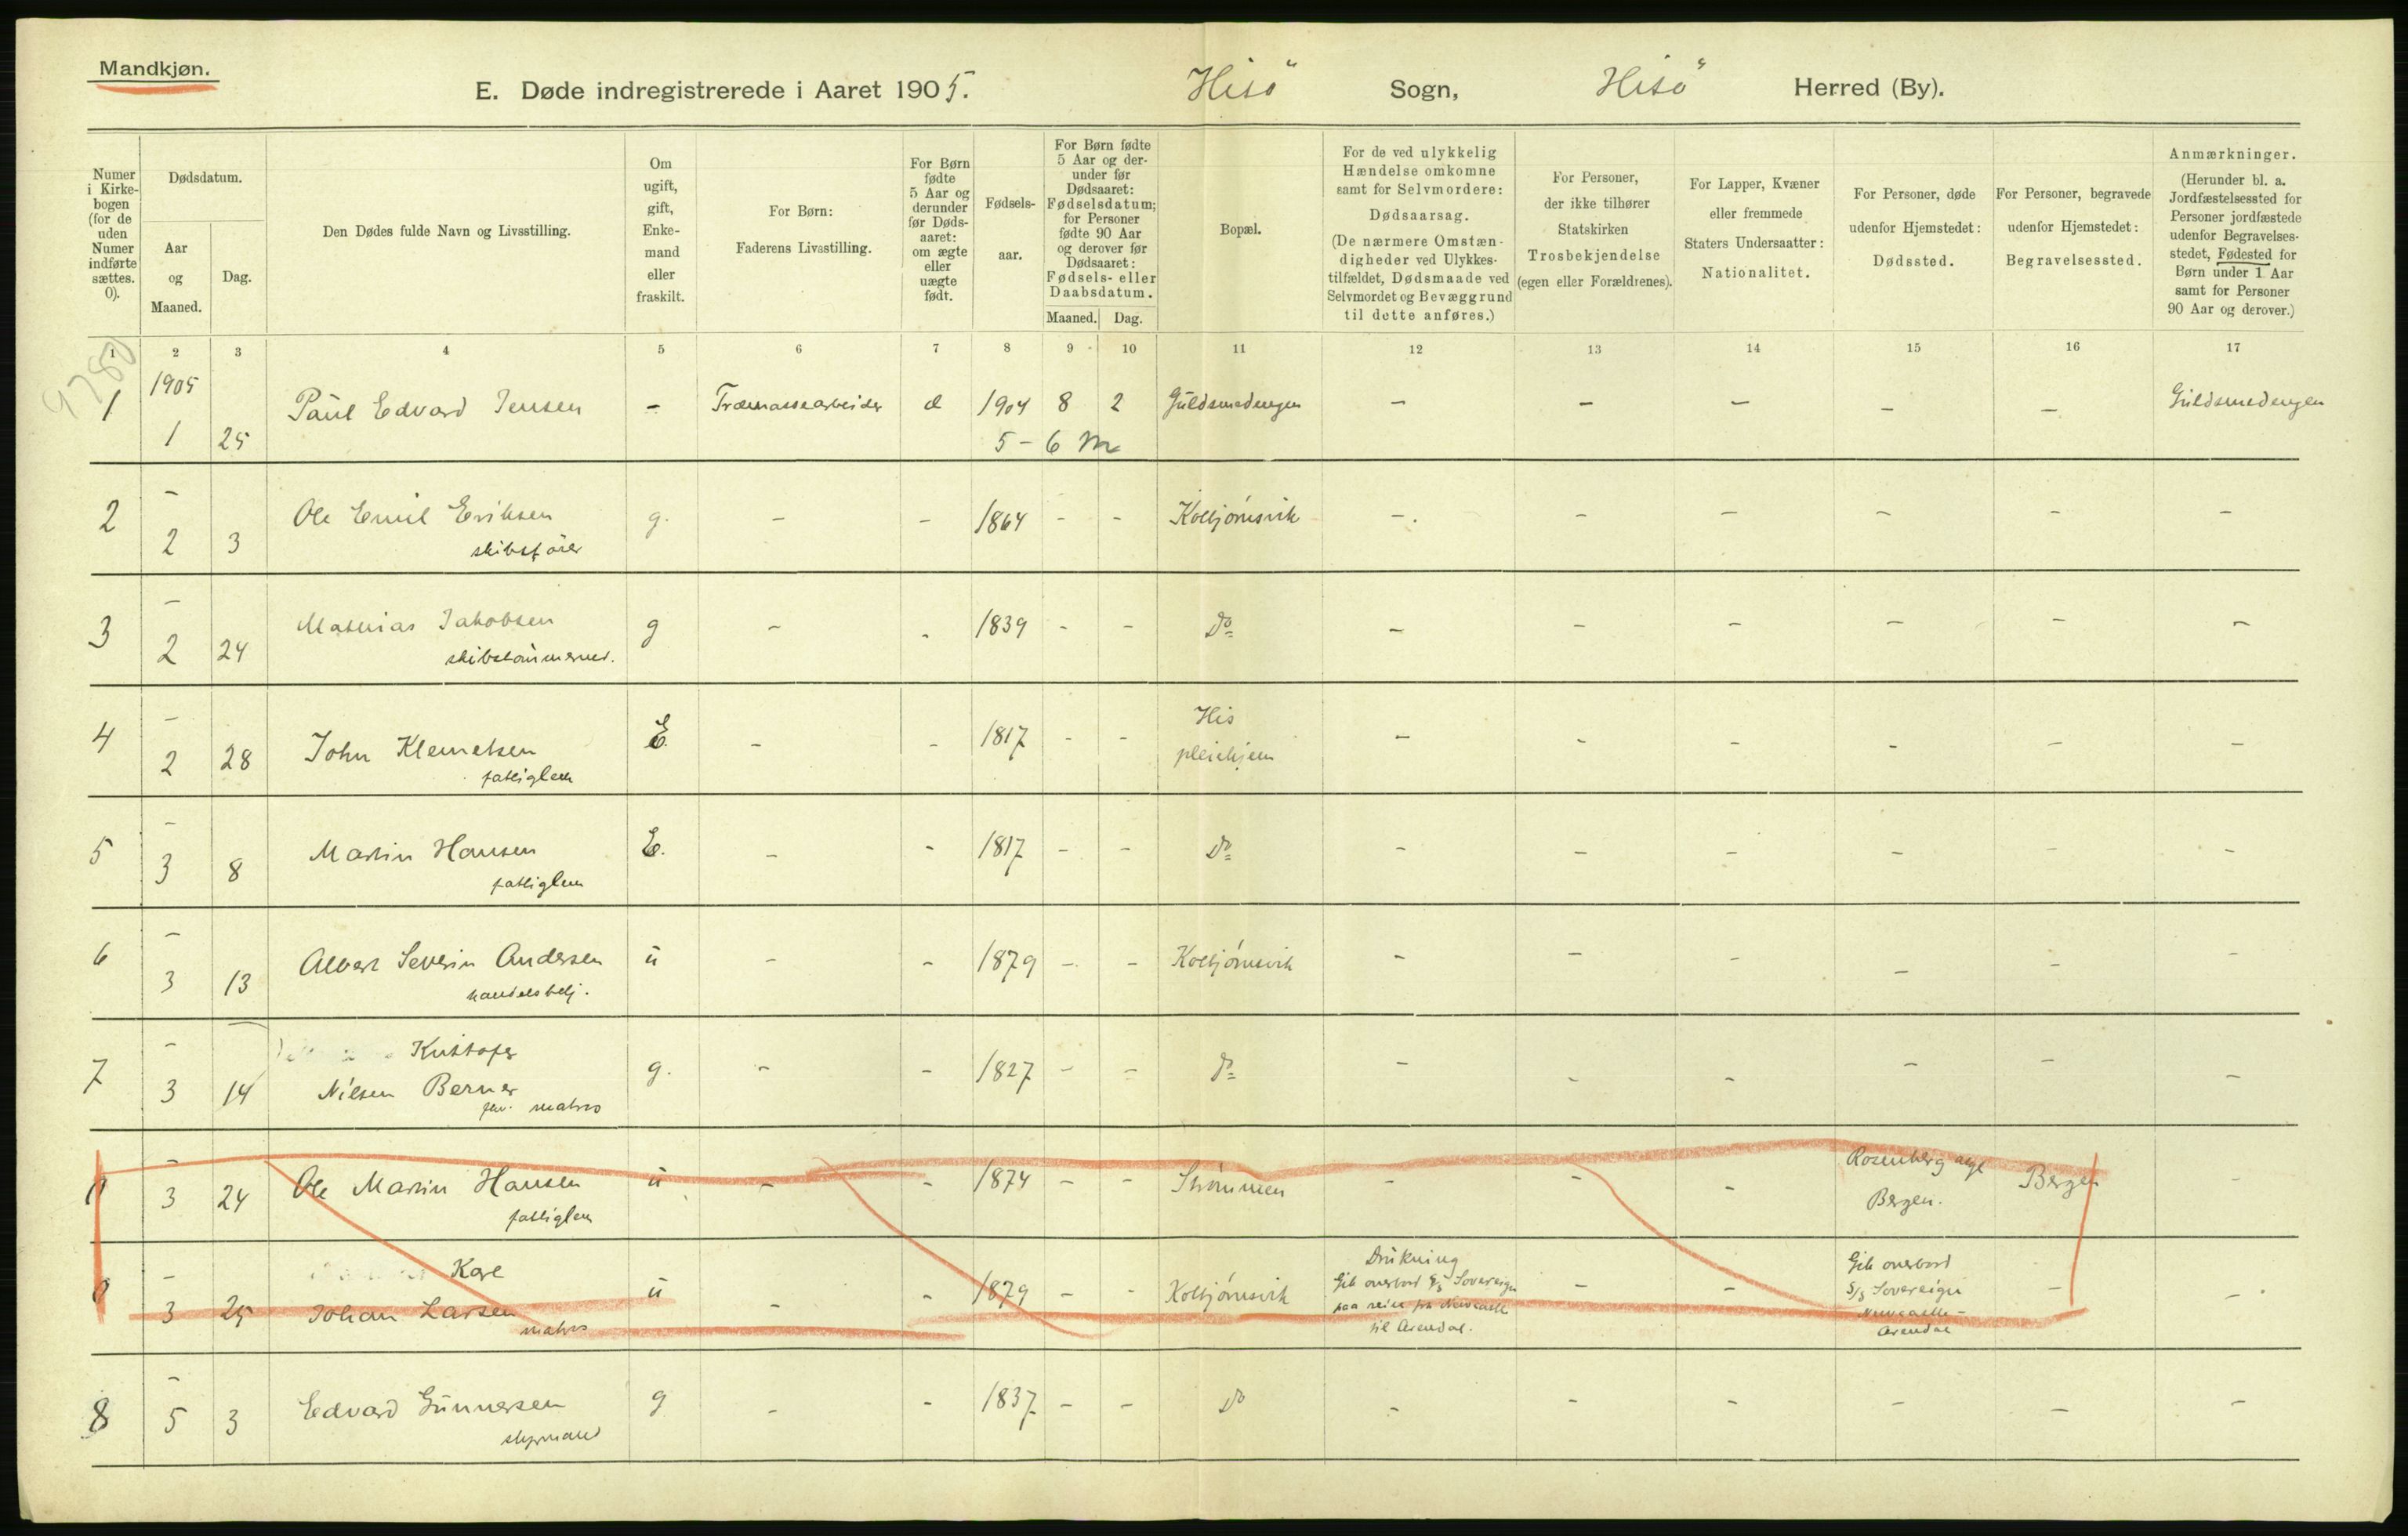 Mandkjøn.
E. Døde indregistrerede i Aaret 1905. Hisö Sogn, Hisö Herred (By).
Numer i Kirkebogen (for de uden Numer indførte sættes. 0).
Dødsdatum.
Aar og Maaned.
Dag.
Den Dødes fulde Navn og Livsstilling.
Om ugift, gift, Enkemand eller fraskilt.
For Børn: Faderens Livsstilling.
For Børn fødte 5 Aar og derunder før Dødsaaret: om ægte eller uægte født.
Fødselsaar.
For Børn fødte 5 Aar og derunder før Dødsaaret: Fødselsdatum; for Personer fødte 90 Aar og derover før Dødsaaret: Fødsels- eller Daabsdatum.
Maaned. Dag.
Bopæl.
For de ved ulykkelig Hændelse omkomne samt for Selvmordere: Dødsaarsag. (De nærmere Omstændigheder ved Ulykkestilfældet, Dødsmaade ved Selvmordet og Bevæggrund til dette anføres.)
For Personer, der ikke tilhører Statskirken Trosbekjendelse (egen eller Forældrenes).
For Lapper, Kvæner eller fremmede Staters Undersaatter: Nationalitet.
For Personer, døde udenfor Hjemstedet: Dødssted.
For Personer, begravede udenfor Hjemstedet: Begravelsessted.
Anmærkninger. (Herunder bl. a. Jordfæstelsessted for Personer jordfæstede udenfor Begravelsesstedet, Fødested for Børn under 1 Aar samt for Personer 90 Aar og derover.)
1 2 3 4 5 6 7 8 9 10 11 12 13 14 15 16 17
1905
1 1 25 Paul Edvard Jensen - Træmassearbeider 1904 8 2 Guldsmedengen - - - - - Guldsmedengen
5-6 m
2 - 2 3 Ole Emil Eriksen g. - - 1864 - - Kolbjørnsvik - - - - - -
skibsfører
3 - 2 24 Mathias Jakobsen g - - 1839 - - Do - - - - - -
skibstømmermd.
4 - 2 28 John Klemetsen E. - - 1817 - - His pleiehjem - - - - - -
fattiglem
5 - 3 8 Martin Hansen E. - - 1817 - - Do - - - - - -
fattiglem
6 - 3 13 Albert Severin Andersen u - - 1879 - - Kolbjørnsvik - - - - - -
handelsbetj.
7 - 3 14 Kristofer
Nilsen Berner g. - - 1827 - - Do - - - - - -
fhv. matros
- 3 24 Ole Martin Hansen u - - 1874 - - Strømmen - - - Rosenberg asyl Bergen. Bergen -
fattiglem
- 3 25 Karl
Johan Larsen u - - 1879 - - Kolbjørnsvik
matros
Drukning
Gik overbord S/s Sovereign
paa reise fra Newcastle
til Arendal.
- -
Gik overbord
S/s Sovereign
Newcastle -
Arendal
- -
8 - 5 3 Edvard Gunnersen g - - 1837 - - Do - - - - - -
styrmand